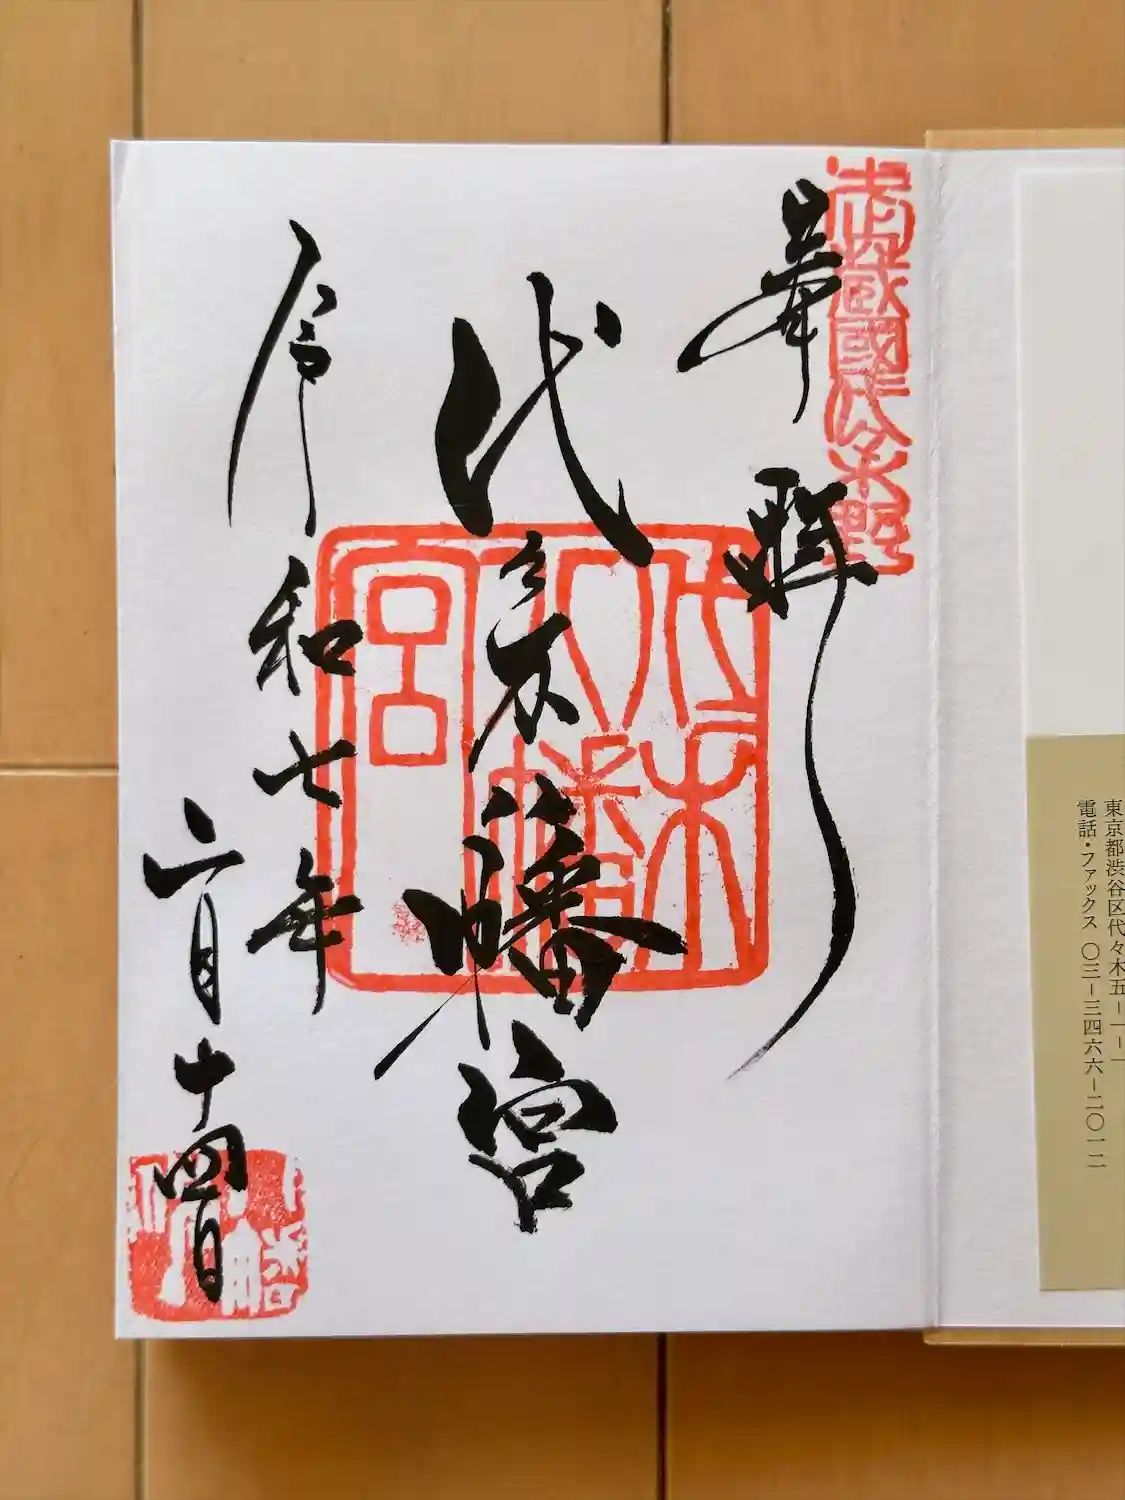 東京都渋谷区代々木五−一−一
電話・ファックス 〇三−三四六六−二〇一二
武蔵國代々木野
奉拜
代々木八幡宮
代々木八幡宮
令和七年
六月十四日